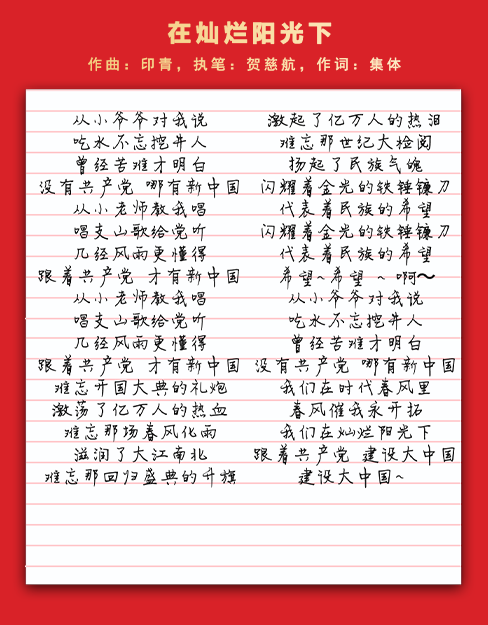 在灿烂阳光下
作曲：印青，执笔：贺慈航，作词：集体
从小爷爷对我说
吃水不忘挖井人
曾经苦难才明白
没有共产党 哪有新中国
从小老师教我唱
唱支山歌给党听
几经风雨更懂得
跟着共产党 才有新中国
从小老师教我唱
唱支山歌给党听
几经风雨更懂得
跟着共产党 才有新中国
难忘开国大典的礼炮
激荡了亿万人的热血
难忘那场春风化雨
滋润了大江南北
难忘那回归盛典的升旗
激起了亿万人的热泪
难忘那世纪大检阅
扬起了民族气魄
闪耀着金光的铁锤镰刀
代表着民族的希望
闪耀着金光的铁锤镰刀
代表着民族的希望
希望~希望 ~ 啊~
从小爷爷对我说
吃水不忘挖井人
曾经苦难才明白
没有共产党 哪有新中国
我们在时代春风里
春风催我永开拓
我们在灿烂阳光下
跟着共产党 建设大中国
建设大中国~